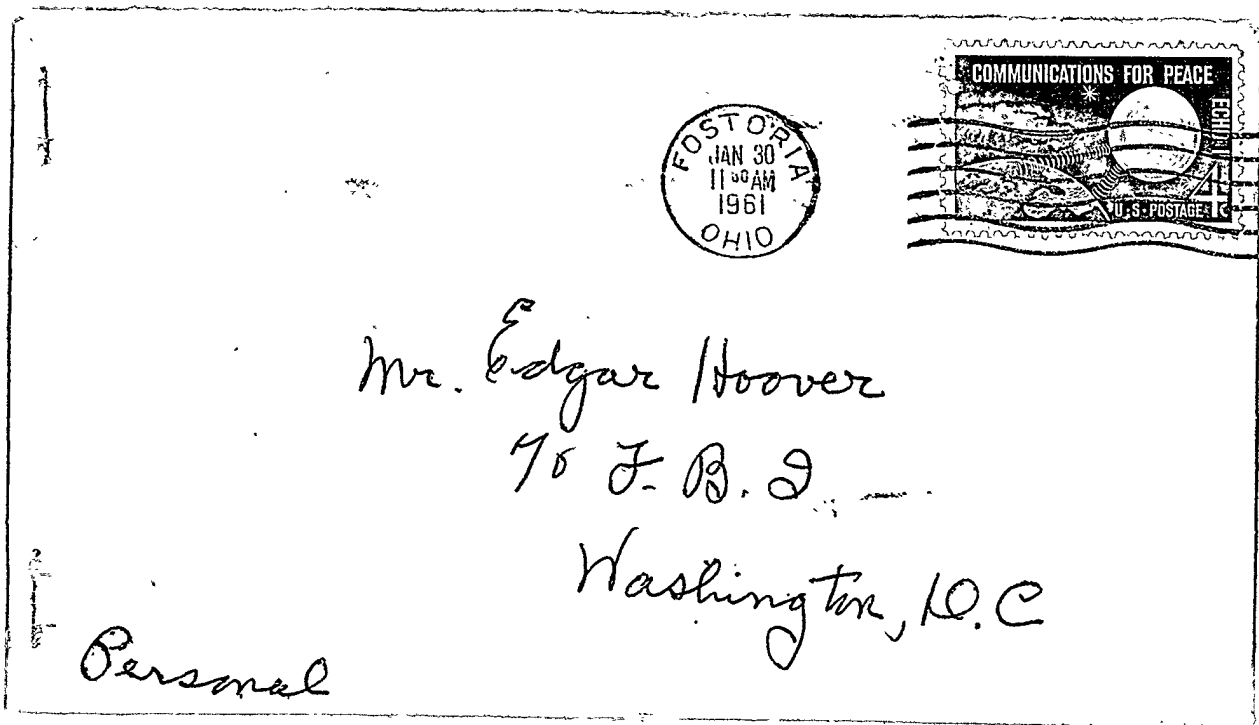 COMMUNICATIONS FOR PEACE
ECHO I
4c
U.S. POSTAGE
FOSTORIA
JAN 30
11 30 AM
1961
OHIO
Mr. Edgar Hoover
% F. B. I.
Washington, D.C
Personal